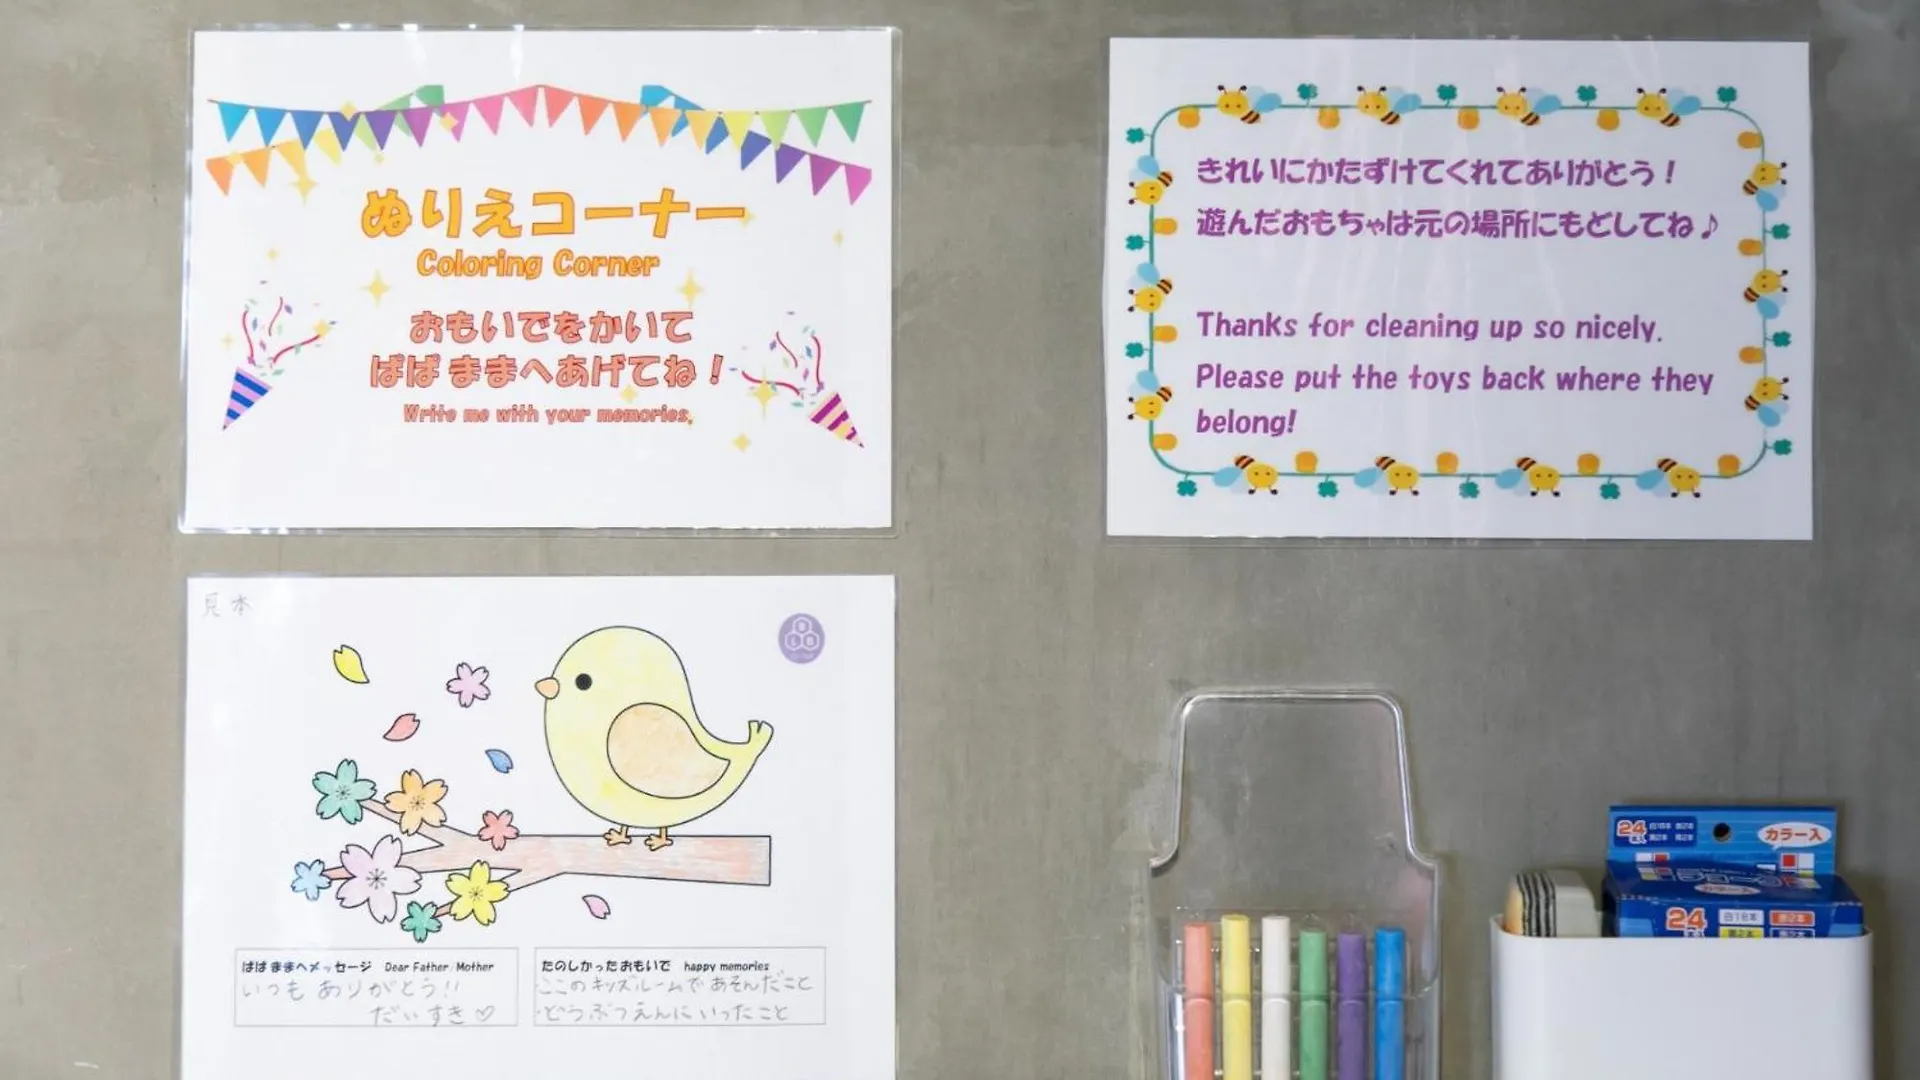 ぬりえコーナー
Coloring Corner
おもいでをかいて
ぱぱ ままへあげてね！
Write me with your memories.
きれいにかたずけてくれてありがとう！
遊んだおもちゃは元の場所にもどしてね♪
Thanks for cleaning up so nicely.
Please put the toys back where they
belong!
見本
ぱぱ ままへメッセージ Dear Father/Mother
いつも ありがとう!!
だいすき♡
たのしかったおもいで happy memories
・ここのキッズルームであそんだこと
・どうぶつえんにいったこと
24
カラー入
カラー入
24
白18本
赤2本